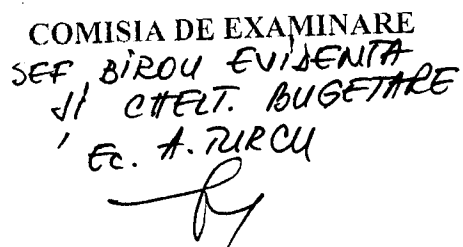 COMISIA DE EXAMINARE
SEF BIROU EVIDENTA
ȘI CHELT. BUGETARE
Ec. A. TURCU